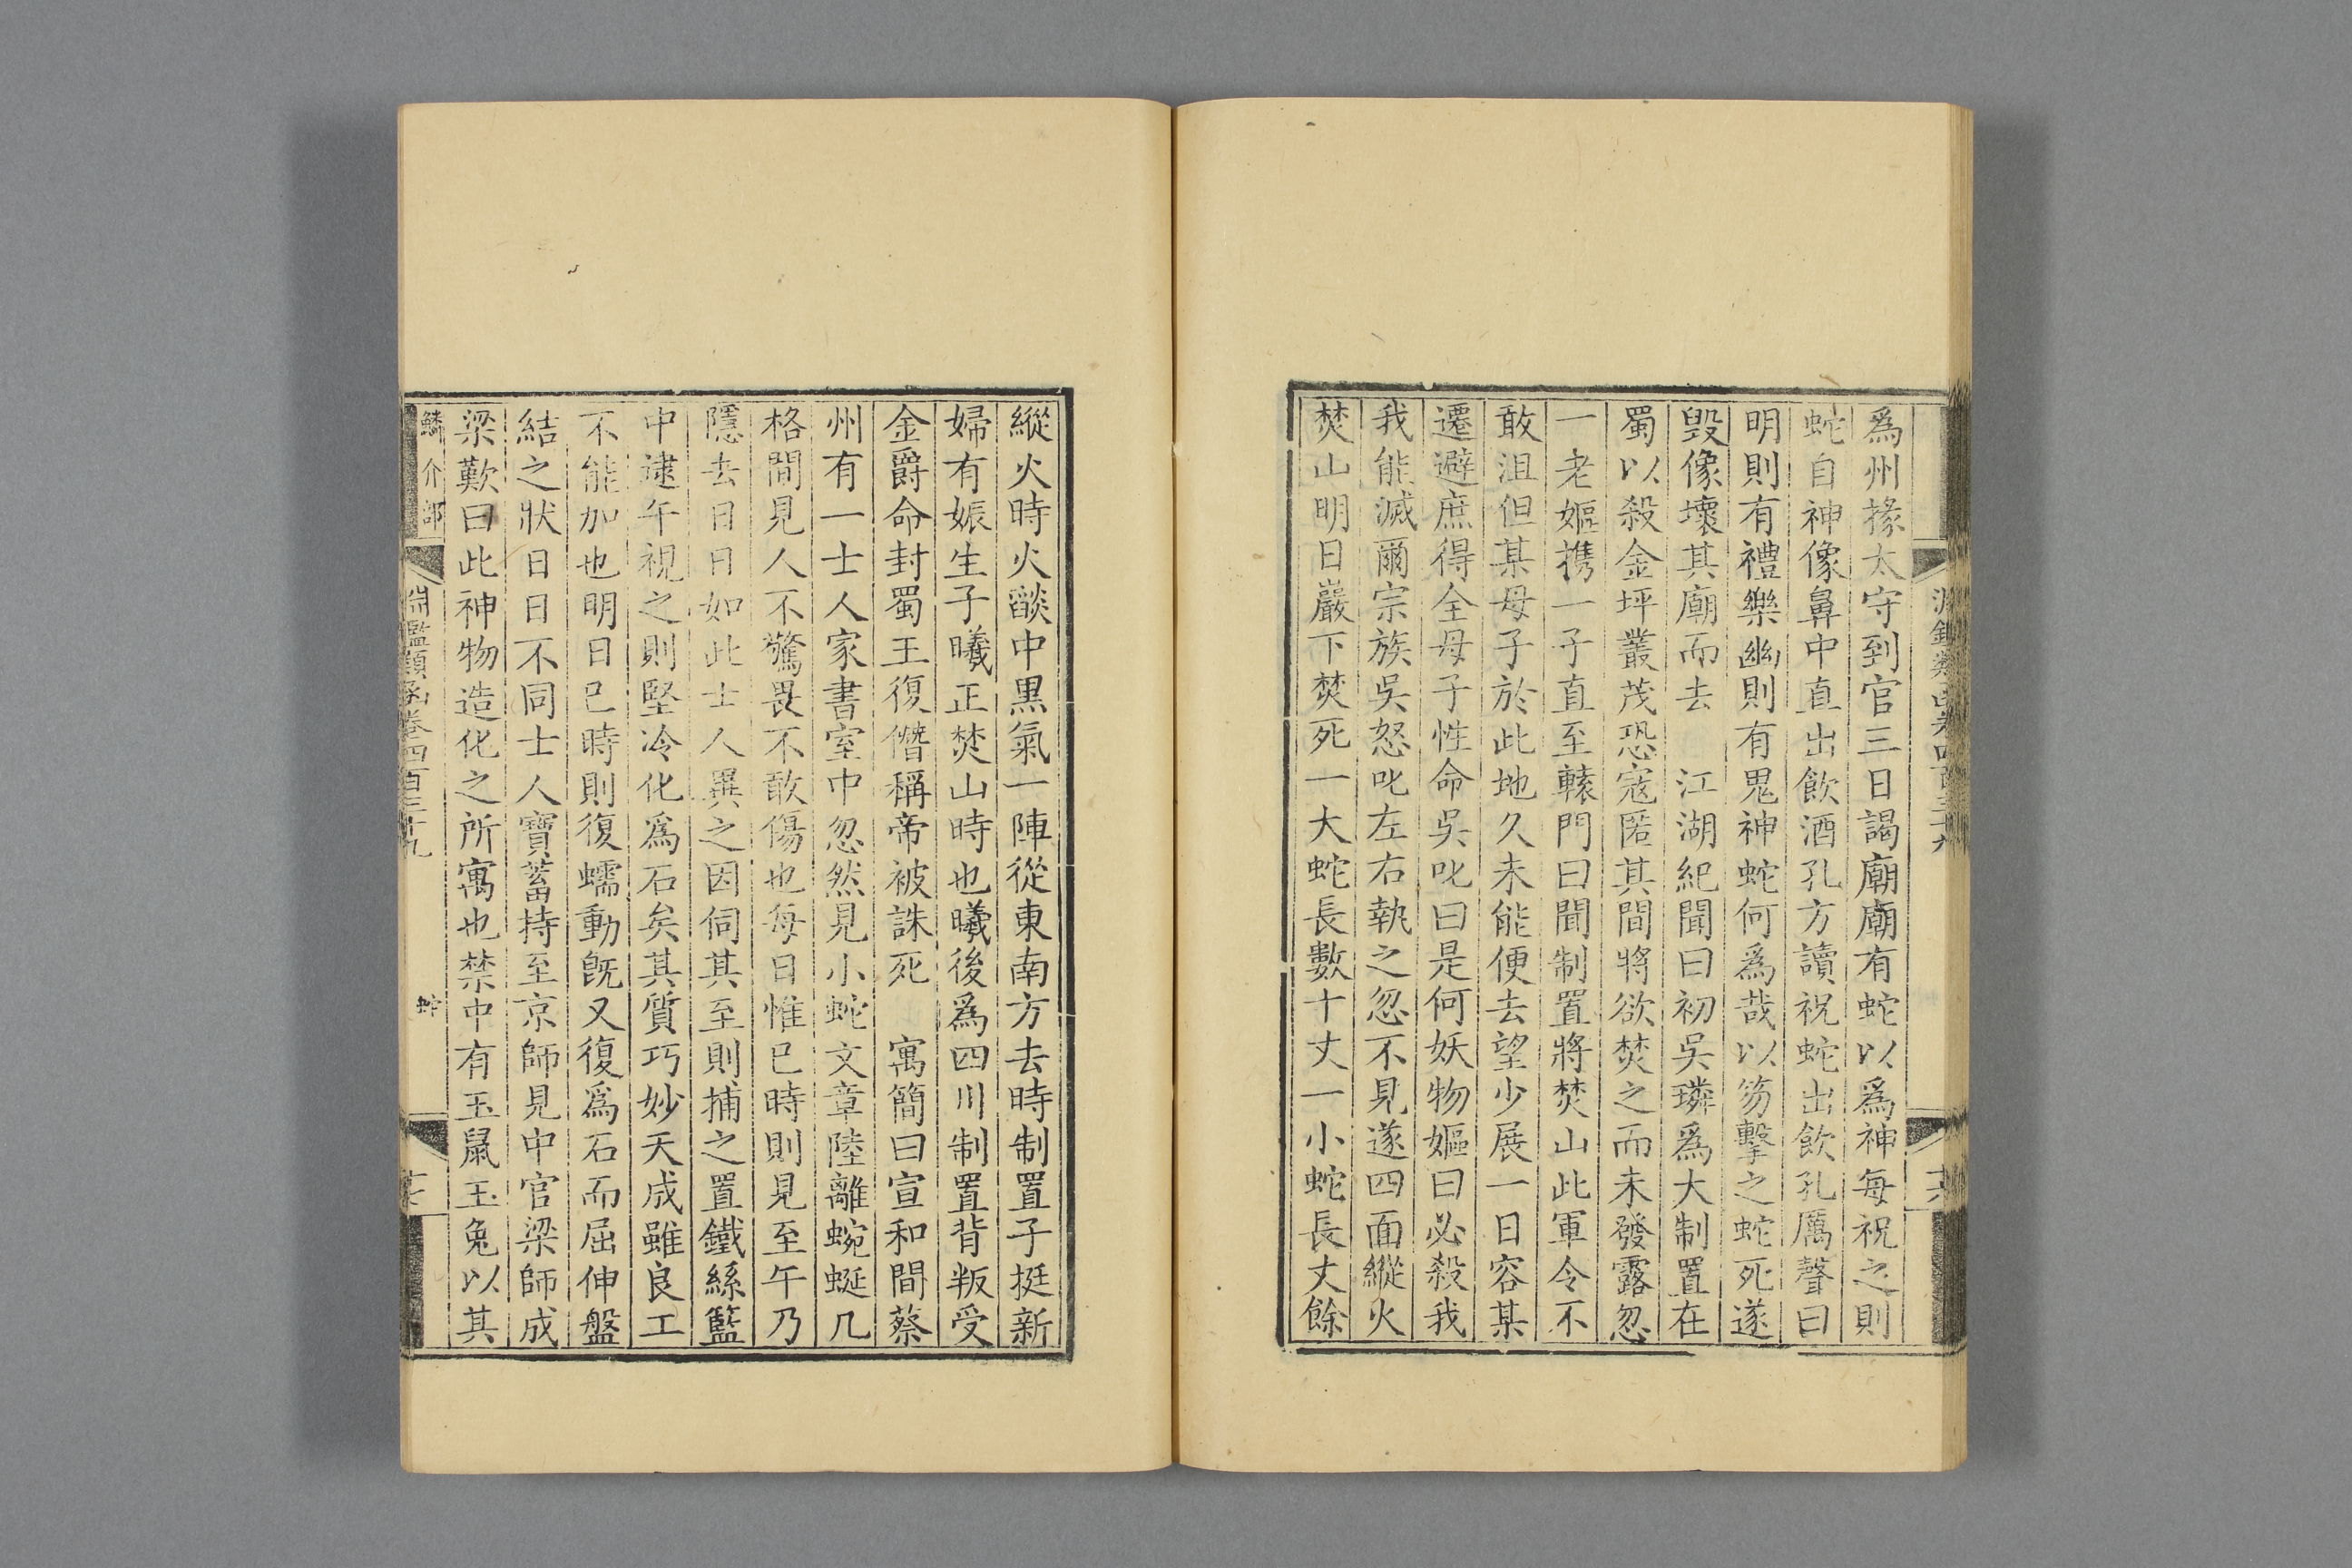 爲州掾太守到官三日謁廟廟有蛇以爲神每祝之則
蛇自神像鼻中直出飲酒孔方讀祝蛇出飲孔厲聲曰
明則有禮樂幽則有鬼神蛇何爲哉以笏擊之蛇死遂
毁像壞其廟而去　江湖紀聞曰初吳璘爲大制置在
蜀以殺金坪叢茂恐寇匿其間將欲焚之而未發露忽
一老嫗携一子直至轅門曰聞制置將焚山此軍令不
敢沮但某母子於此地久未能便去望少展一日容某
遷避庶得全母子性命吳叱曰是何妖物嫗曰必殺我
我能滅爾宗族吳怒叱左右執之忽不見遂四面縱火
焚山明日巖下焚死一大蛇長數十丈一小蛇長丈餘
縱火時火燄中黒氣一陣從東南方去時制置子挺新
婦有娠生子曦正焚山時也曦後爲四川制置背叛受
金爵命封蜀王復僭稱帝被誅死　寓簡曰宣和間蔡
州有一士人家書室中忽然見小蛇文章陸離蜿蜒几
格間見人不驚畏不敢傷也每日惟巳時則見至午乃
隱去日日如此士人異之因伺其至則捕之置鐵絲籃
中逮午視之則堅冷化爲石矣其質巧妙天成雖良工
不能加也明日巳時則復蠕動旣又復爲石而屈伸盤
結之狀日日不同士人寶蓄持至京師見中官梁師成
梁歎曰此神物造化之所寓也禁中有玉鼠玉兔以其
鱗介部　淵鑑類函卷四百三十九　蛇